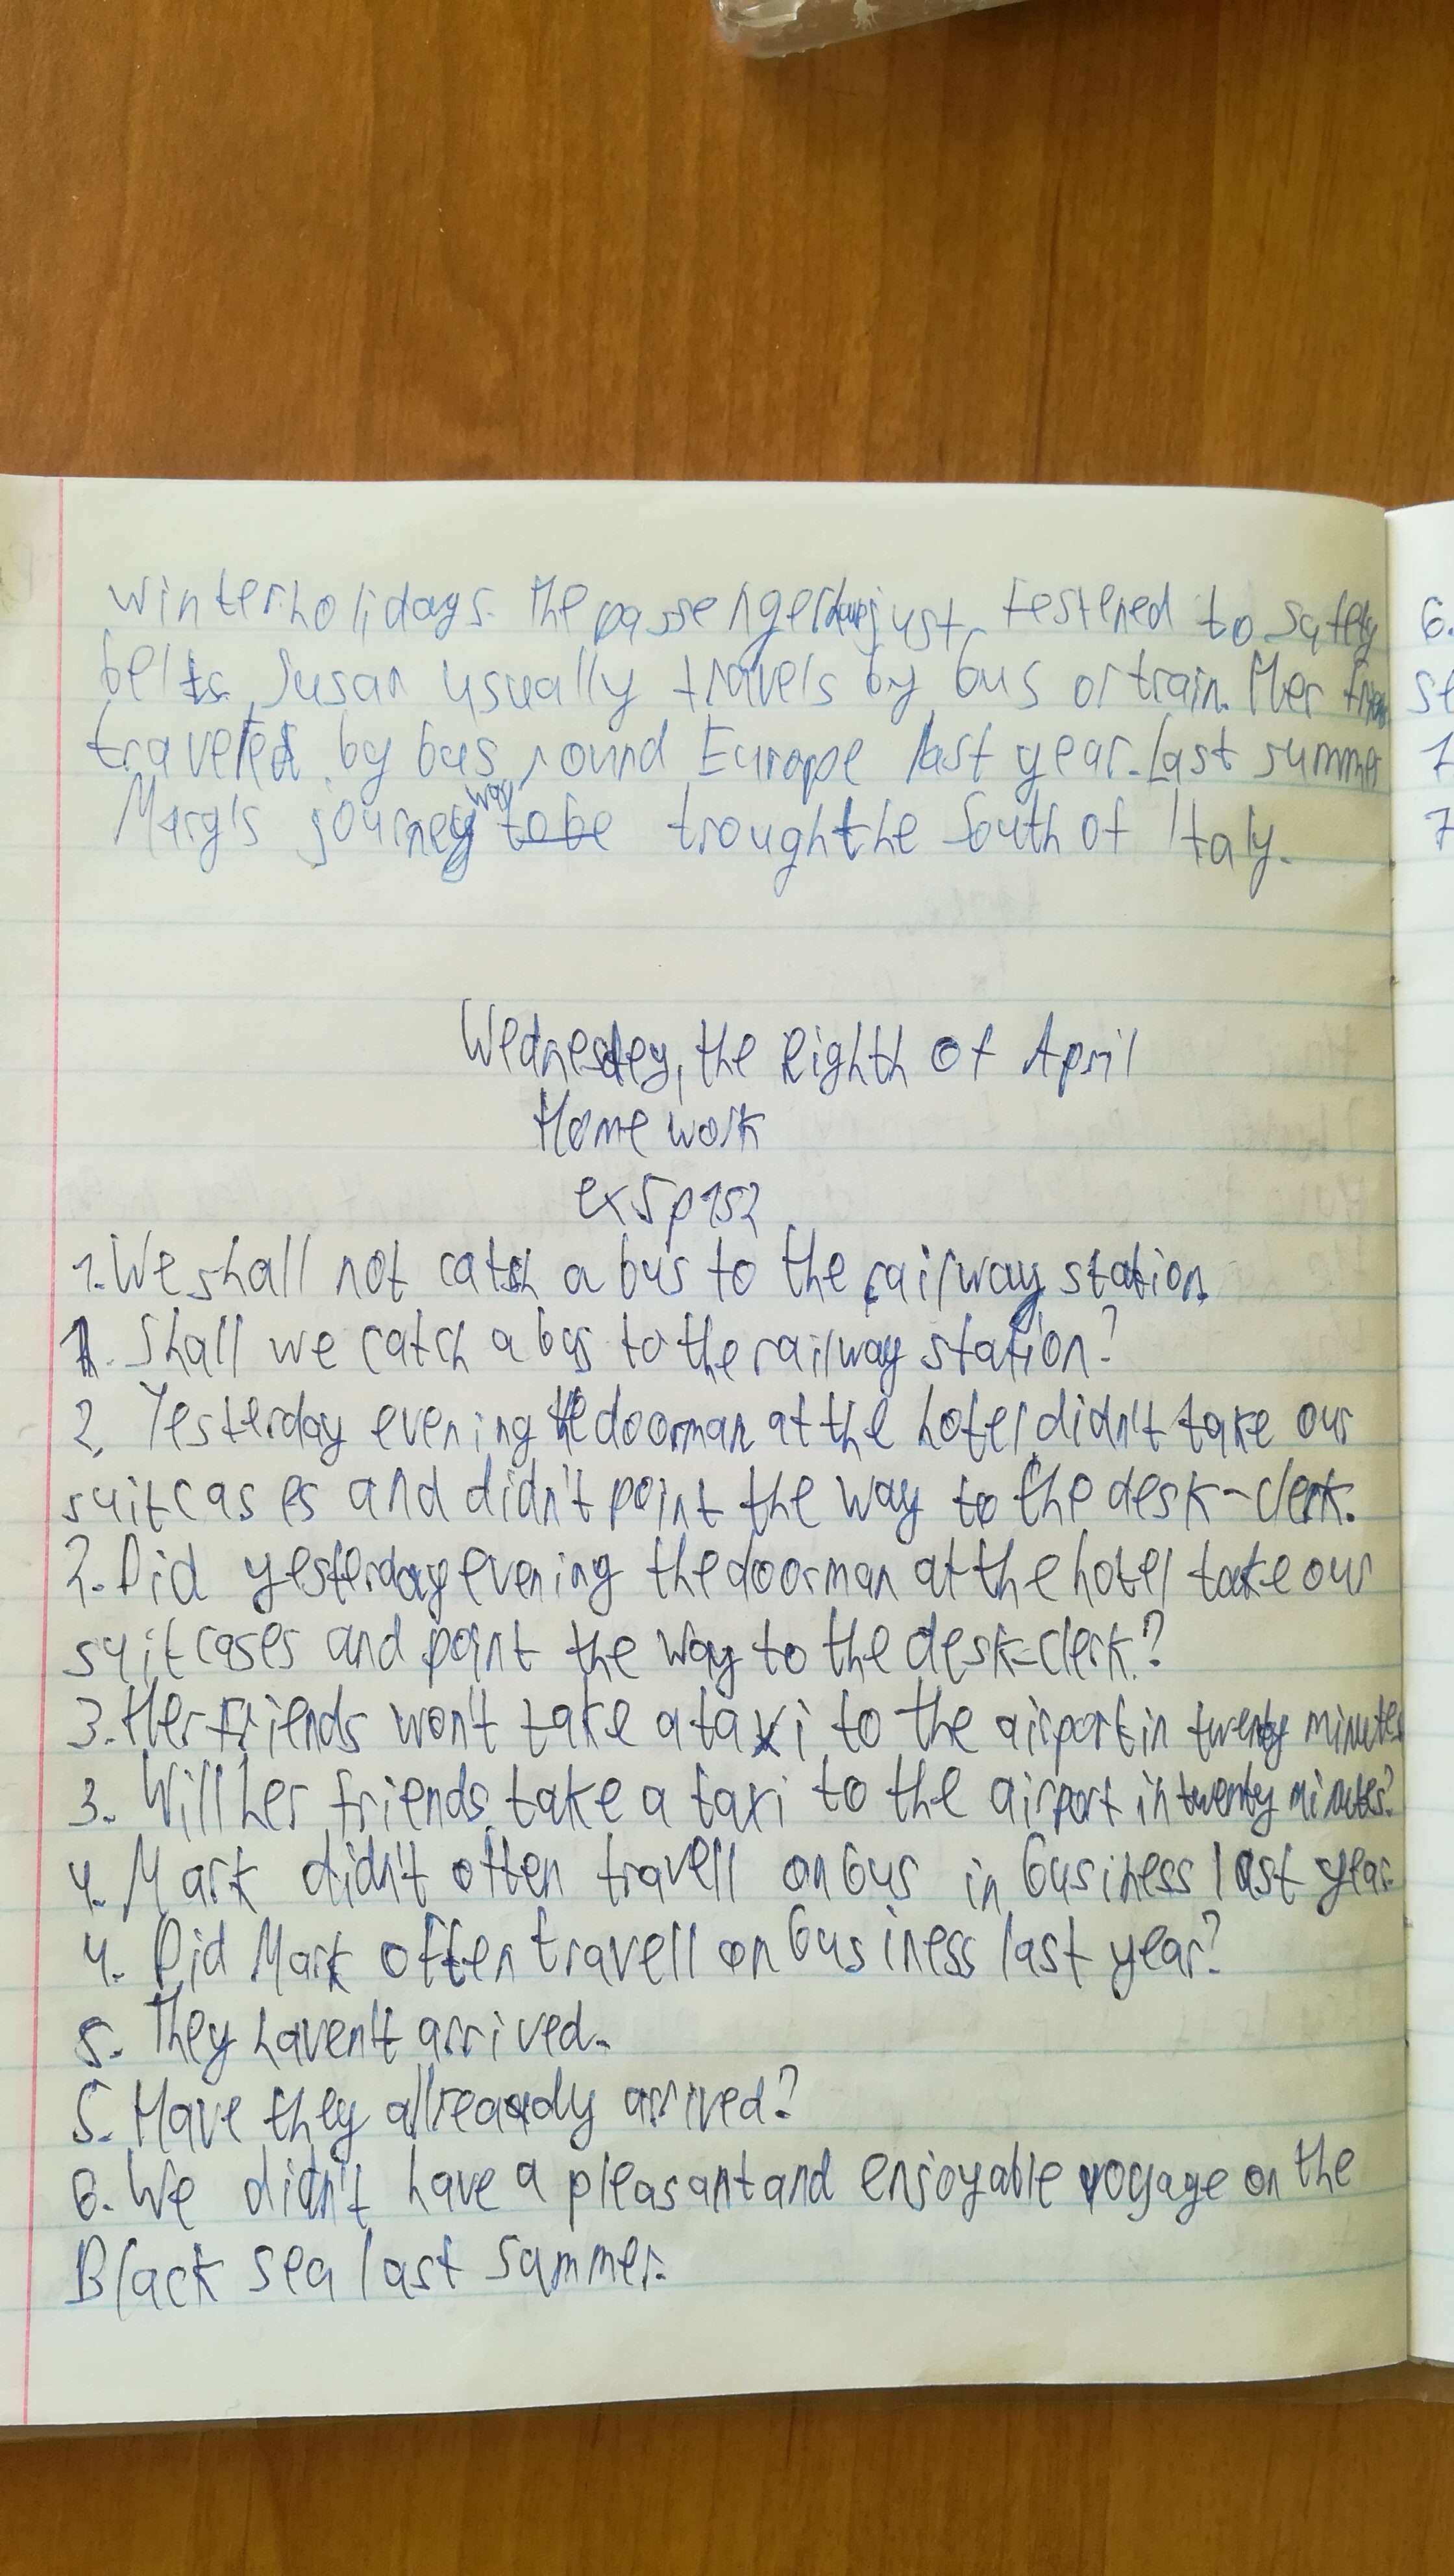 winter holidays. The passengers have just festened to safety
belts. Susan usually travels by bus or train. Her
traveled by bus round Europe last year. Last summer
Mary's journey was to be trought the South of Italy.
Wednesdey, the Eighth of April
Home work
ex 5 p 152
1. We shall not catch a bus to the railway station.
1. Shall we catch a bus to the railway station?
2. Yesterday evening the doorman at the hotel didn't take our
suitcases and didn't point the way to the desk-clerk.
2. Did yesterday evening the doorman at the hotel take our
suitcases and point the way to the desk-clerk?
3. Her friends won't take a taxi to the airport in twenty minutes
3. Will her friends take a taxi to the airport in twenty minutes?
4. Mark didn't often travell on bus in business last year.
4. Did Mark often travell on business last year?
5. They haven't arrived.
5. Have they allready arrived?
6. We didn't have a pleasant and enjoyable voyage on the
Black sea last summer.
6.
1
7